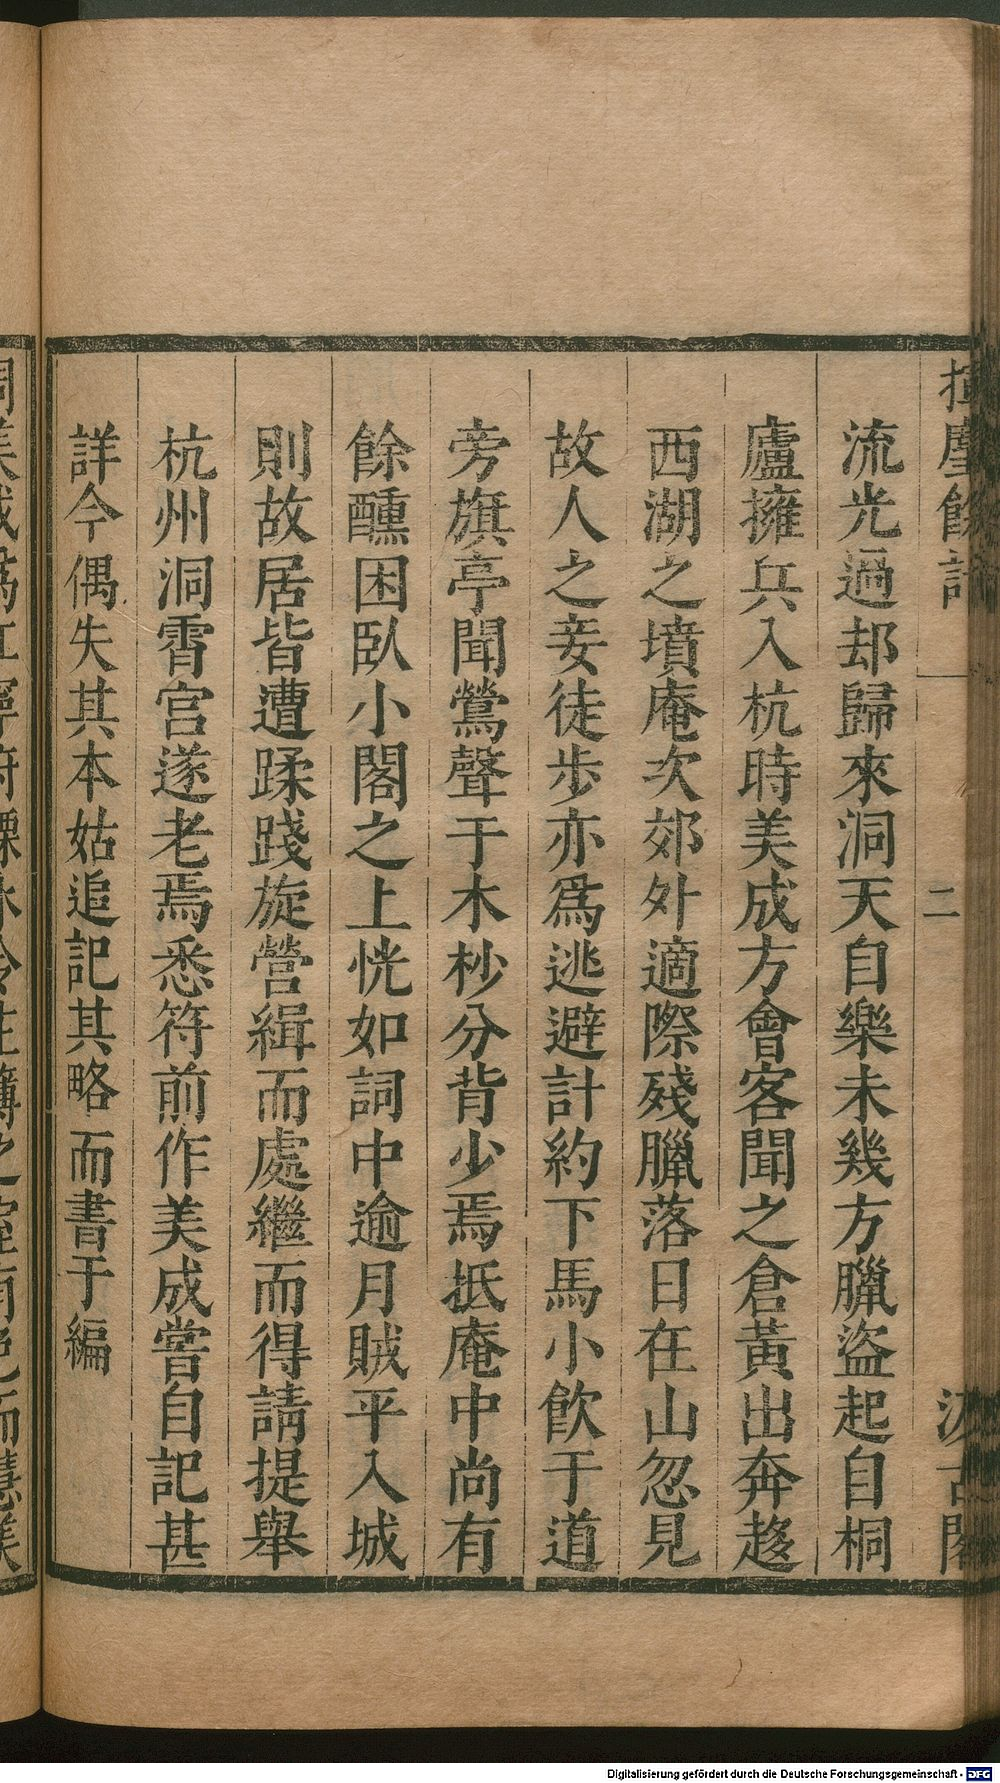 揮麈餘話 二 汲古閣
流光過却歸來洞天自樂未幾方臘盜起自桐
廬擁兵入杭時美成方會客聞之倉黃出奔趍
西湖之墳庵次郊外適際殘臘落日在山忽見
故人之妾徒步亦爲逃避計約下馬小飲于道
旁旗亭聞鶯聲于木杪分背少焉抵庵中尚有
餘醺困臥小閣之上恍如詞中逾月賊平入城
則故居皆遭蹂踐旋營緝而處繼而得請提舉
杭州洞霄宮遂老焉悉符前作美成嘗自記甚
詳今偶失其本姑追記其略而書于編
Digitalisierung gefördert durch die Deutsche Forschungsgemeinschaft - DFG